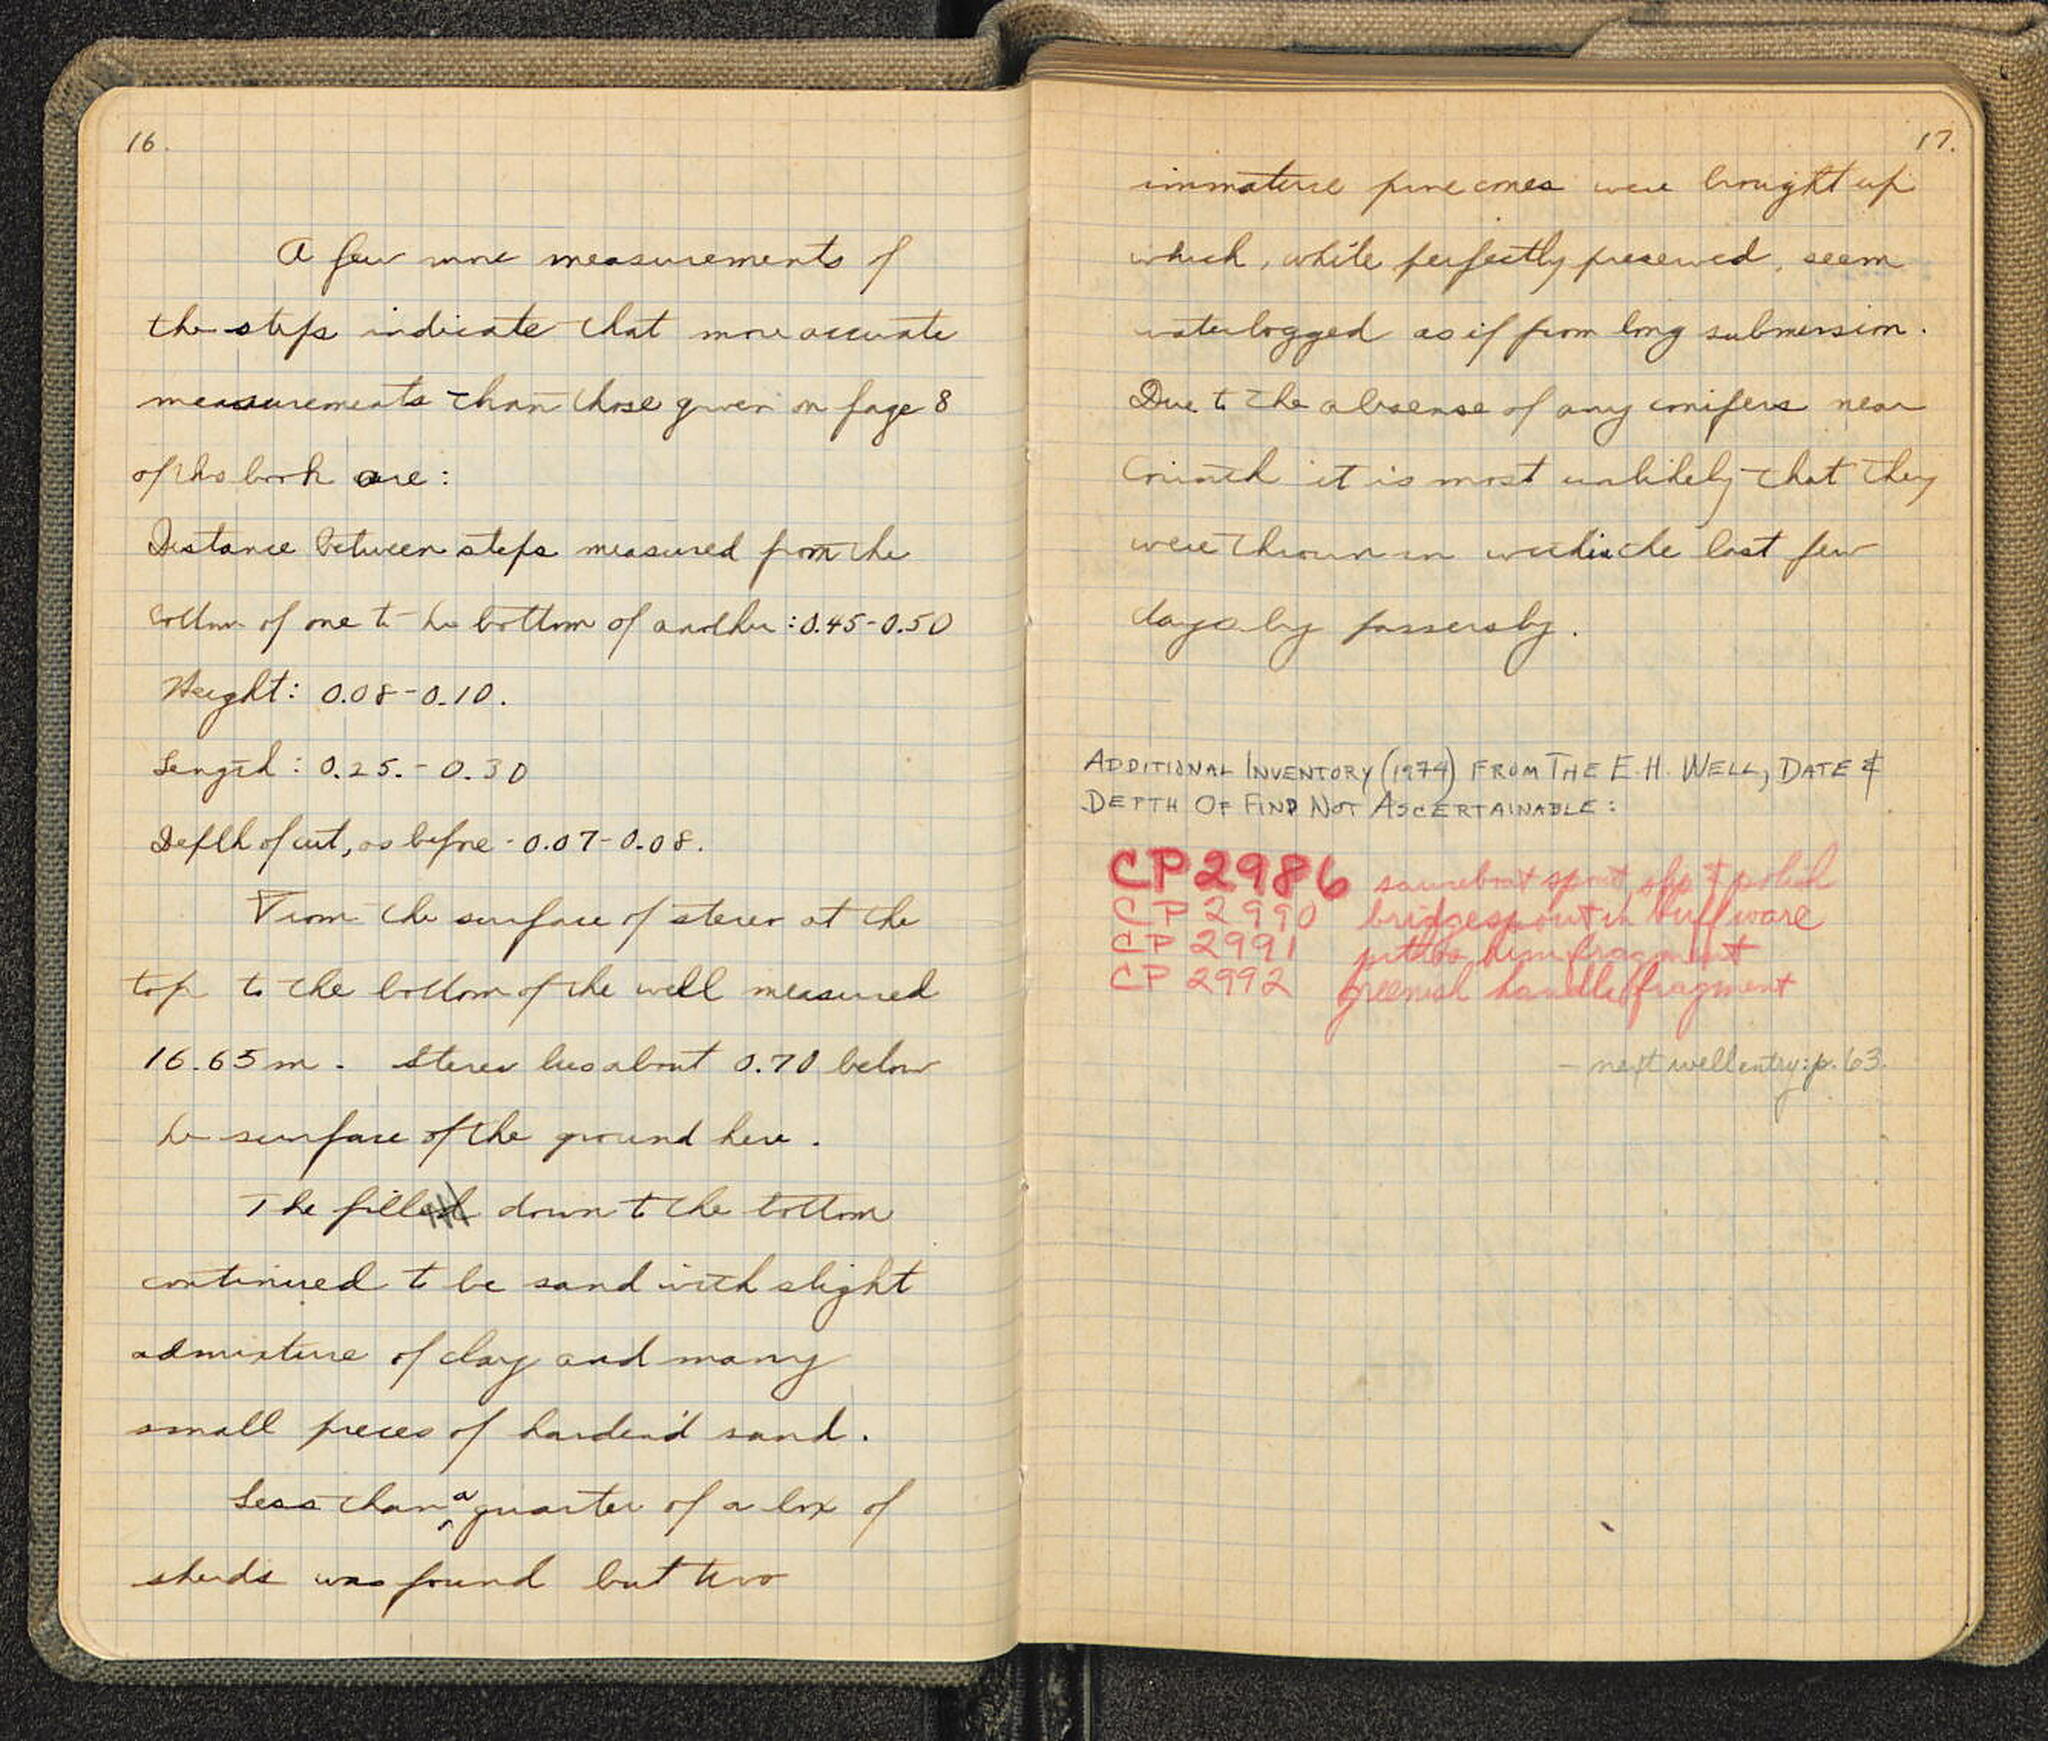 16.
A few more measurements of
the steps indicate that more accurate
measurements than those given on page 8
of this book are:
Distance between steps measured from the
bottom of one to the bottom of another: 0.45-0.50
Height: 0.08-0.10.
Length: 0.25.-0.30
Depth of cut, as before - 0.07-0.08.
From the surface of stereo at the
top to the bottom of the well measured
16.65 m. Stereo lies about 0.70 below
the surface of the ground here.
The fill down to the bottom
continued to be sand with slight
admixture of clay and many
small pieces of harden'd sand.
Less than a quarter of a box of
sherds was found but two
17.
immature pine cones were brought up
which, while perfectly preserved, seem
waterlogged as if from long submersion.
Due to the absense of any conifers near
Corinth it is most unlikely that they
were thrown in within the last few
days by passersby.
ADDITIONAL INVENTORY (1974) FROM THE E.H. WELL, DATE &
DEPTH OF FIND NOT ASCERTAINABLE:
CP2986 sauceboat spout, slip & polish
CP 2990 bridgespout in buff ware
CP 2991 pithos rim fragment
CP 2992 greenish handle fragment
- next well entry: p. 63.